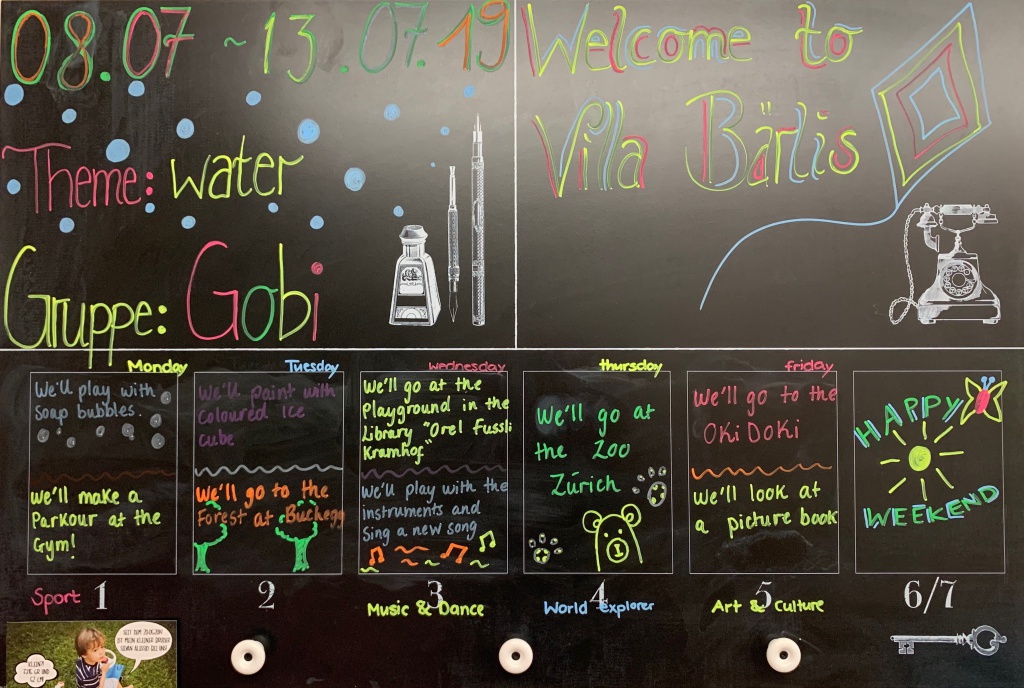 08.07 ~ 13.07.19
Theme: water
Gruppe: Gobi
Welcome to
Villa Bärlis
Monday
We'll play with
soap bubbles.
we'll make a
Parkour at the
Gym!
Sport
1
Tuesday
We'll paint with
coloured ice
cube
We'll go to the
Forest at Buchegg
2
wednesday
We'll go at the
Playground in the
Library "Orel Füssli
Kramhof"
We'll play with the
instruments and
Sing a new song
3
Music & Dance
thursday
We'll go at
the Zoo
Zürich
4
World explorer
friday
We'll go to the
OKi DoKi
We'll look at
a picture book
5
Art & Culture
HAPPY
WEEKEND
6/7
SEIT DEM
IST MEIN KLEINER BRUDER
BEI UNS!